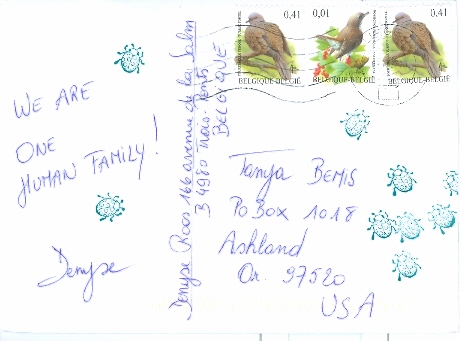 WE ARE
ONE
HUMAN FAMILY!
Denyse
Denyse Roos 166 avenue de la Salm
B 4980 Trois-Ponts
BELGIQUE
0,41
0,01
0,41
BELGIQUE-BELGIË
BELGIQUE-BELGIË
BELGIQUE-BELGIË
Tanya BEMIS
PO Box 1018
Ashland
Or. 97520
USA